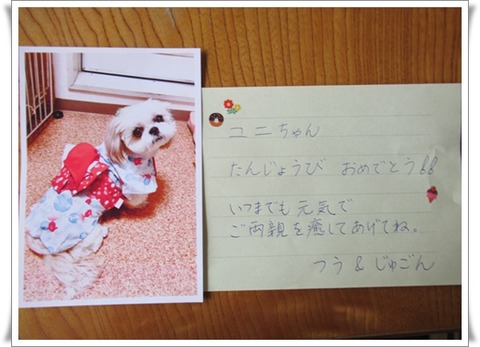 ユニちゃん
たんじょうび おめでとう!!
いつまでも元気で
ご両親を癒してあげてね。
つう & じゅごん